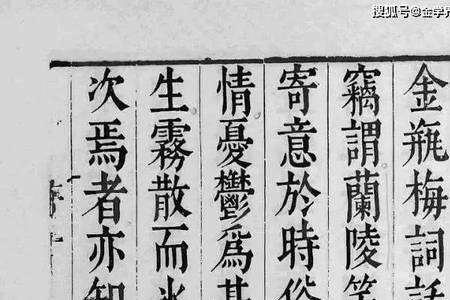 搜狐号@金学界
金瓶梅詞話
竊謂蘭陵笑
寄意於時俗
情憂鬱爲甚
生霧散而氷
次焉者亦知